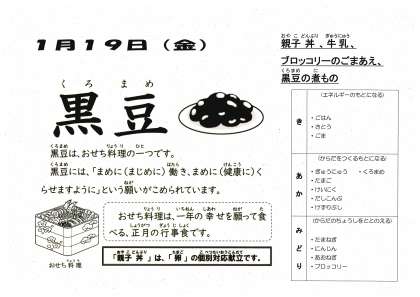 1月19日（金）
親子丼、牛乳、
ブロッコリーのごまあえ、
黒豆の煮もの
黒豆
黒豆は、おせち料理の一つです。
黒豆には、「まめに(まじめに)働き、まめに(健康に)く
らせますように」という願いがこめられています。
おせち料理は、一年の幸せを願って食
べる、正月の行事食です。
おせち料理
「親子丼」は、「卵」の個別対応献立です。
き
（エネルギーのもとになる）
・ごはん
・さとう
・ごま
あか
（からだをつくるもとになる）
・ぎゅうにゅう ・くろまめ
・たまご
・けいにく
・だしこんぶ
・けずりぶし
みどり
（からだのちょうしをととのえる）
・たまねぎ
・にんじん
・あおねぎ
・ブロッコリー